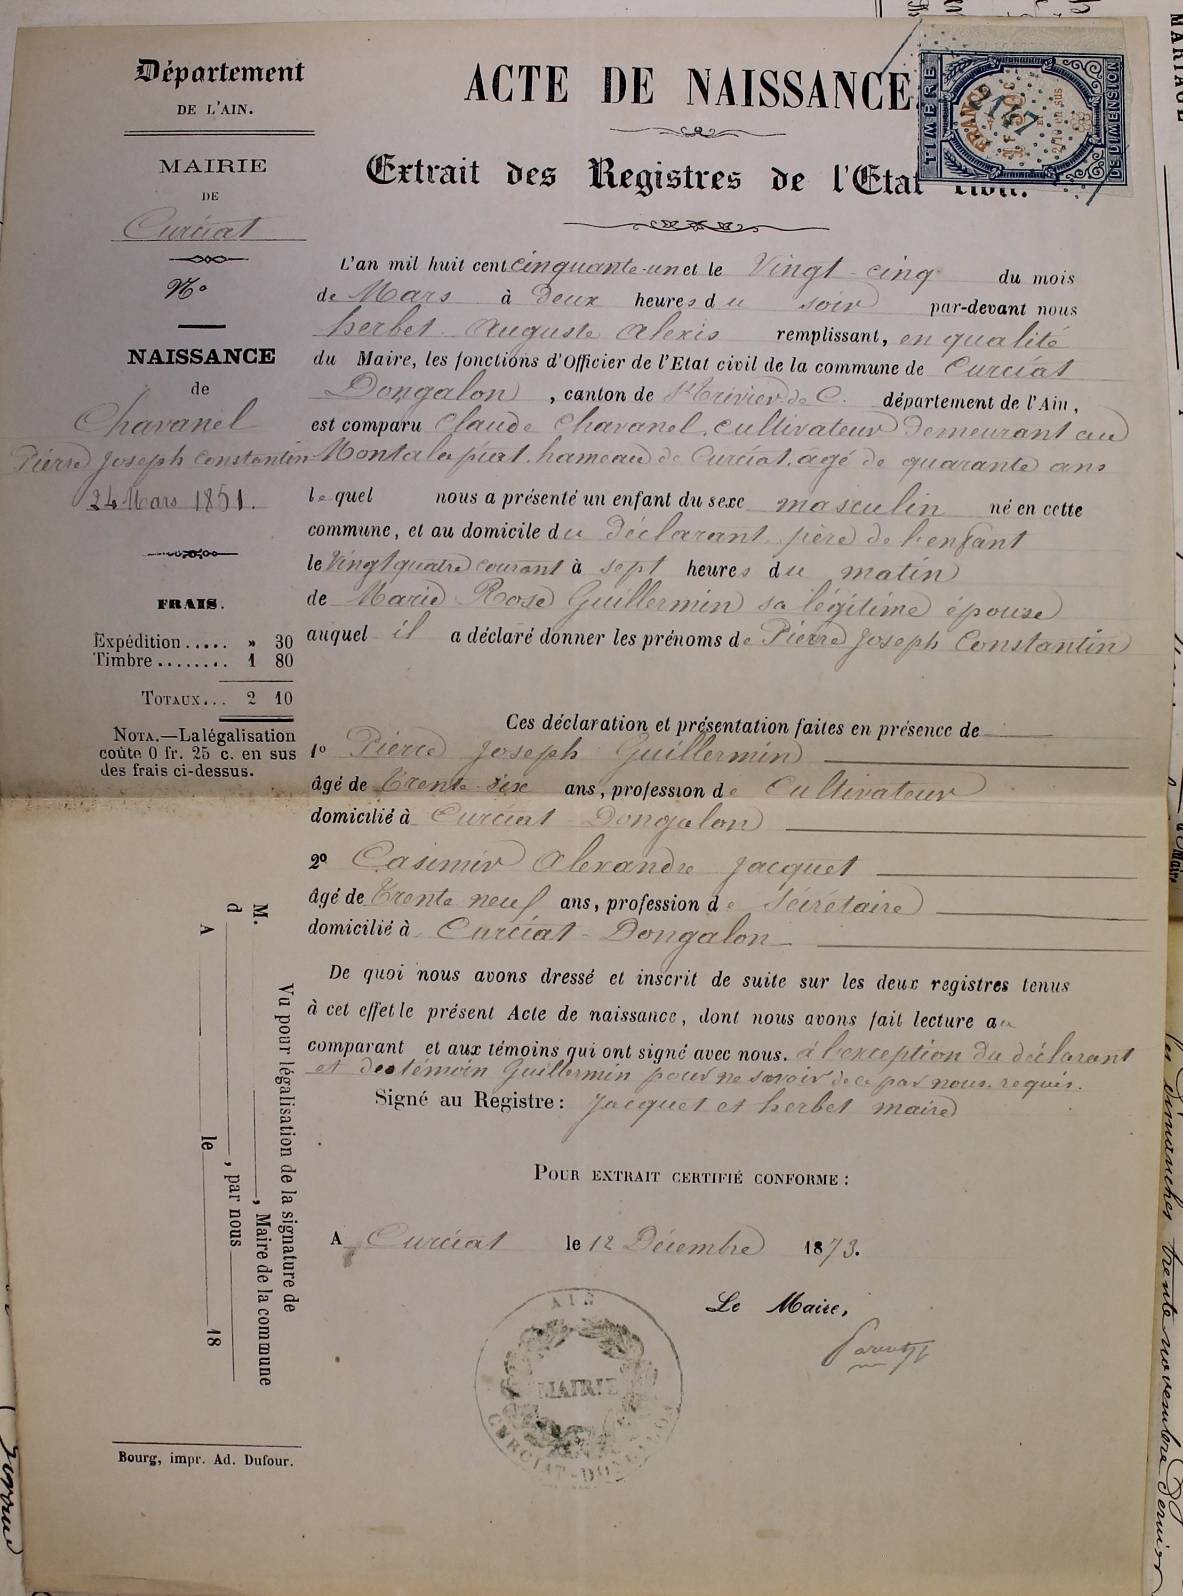 Département
DE L'AIN.
MAIRIE
DE
Curciat
No
NAISSANCE
de
Chavanel
Pierre Joseph Constantin
24 Mars 1851.
FRAIS.
Expédition..... » 30
Timbre........ 1 80
TOTAUX... 2 10
NOTA.—La légalisation
coûte 0 fr. 25 c. en sus
des frais ci-dessus.
Vu pour légalisation de la signature de
M. , Maire de la commune
d , par nous
A le 18
Bourg, impr. Ad. Dufour.
ACTE DE NAISSANCE
TIMBRE
DE DIMENSION
FRANCE
2/10 en sus
Extrait des Registres de l'Etat civil.
L'an mil huit cent cinquante-un et le Vingt-cinq du mois
de Mars à Deux heures du soir par-devant nous
herbet Auguste Alexis remplissant, en qualité
du Maire, les fonctions d'Officier de l'Etat civil de la commune de Curciat
Dongalon, canton de St Trivier de C. département de l'Ain,
est comparu Claude Chavanel, cultivateur demeurant au
Montalapiat, hameau de Curciat, agé de quarante ans
lequel nous a présenté un enfant du sexe masculin né en cette
commune, et au domicile du déclarant père de l'enfant
le Vingt quatre courant à sept heures du matin
de Marie Rose Guillermin sa légitime épouse
auquel il a déclaré donner les prénoms de Pierre Joseph Constantin
Ces déclaration et présentation faites en présence de
1º Pierre Joseph Guillermin
âgé de Trente six ans, profession de Cultivateur
domicilié à Curciat-Dongalon
2º Casimir Alexandre Jacquet
âgé de Trente neuf ans, profession de Sécrétaire
domicilié à Curciat-Dongalon
De quoi nous avons dressé et inscrit de suite sur les deux registres tenus
à cet effet le présent Acte de naissance, dont nous avons fait lecture au
comparant et aux témoins qui ont signé avec nous. à l'exception du déclarant
et du témoin Guillermin pour ne savoir de ce par nous requis.
Signé au Registre: Jacquet et herbet maire
POUR EXTRAIT CERTIFIÉ CONFORME :
A Curciat le 12 Décembre 1873.
Le Maire,
AIN
MAIRIE
CURCIAT-DONGALON
MARIAGE
les dimanches trente novembre dernier